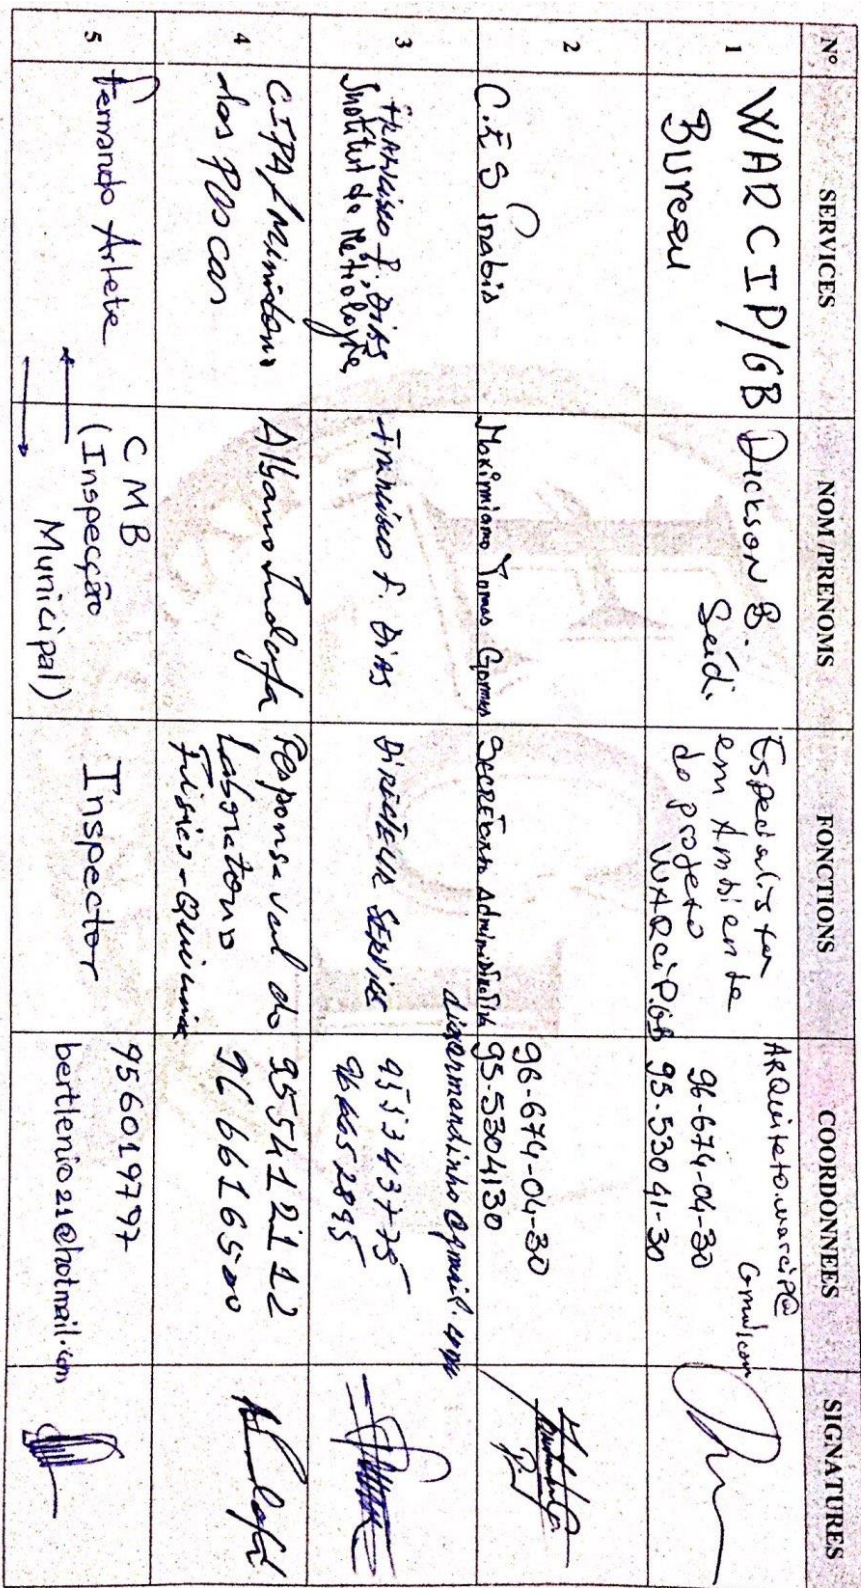 Nº SERVICES NOM/PRENOMS FONCTIONS COORDONNEES SIGNATURES
1
WARCIP/GB
Bureau
Dickson B.
Seidi
Especialista
em Ambiente
do projeto
WARCIP.GB
ARQuiteto.warcip@
Gmail.com
96-674-04-30
95-530 41-30
2
C.E.S Inabio
Maximiano Tomas Gomes
Secretário Administrativo
96-674-04-30
95-5304130
3
FRANcisco F. DiAS
Institut de Métrologie,
Francisco F. DiAS
DiRECTEUR SERVICE
diasarmandinho@gmail.com
955343775
966652895
4
CIPA/
dos Pescas
Albano Indafa
Responsavel do
Laboratorio
Fisico-Quimica
955412112
966616500
5
Fernando Arlete
CMB
(Inspecção
Municipal)
Inspector
956019797
bertlenio21@hotmail.com